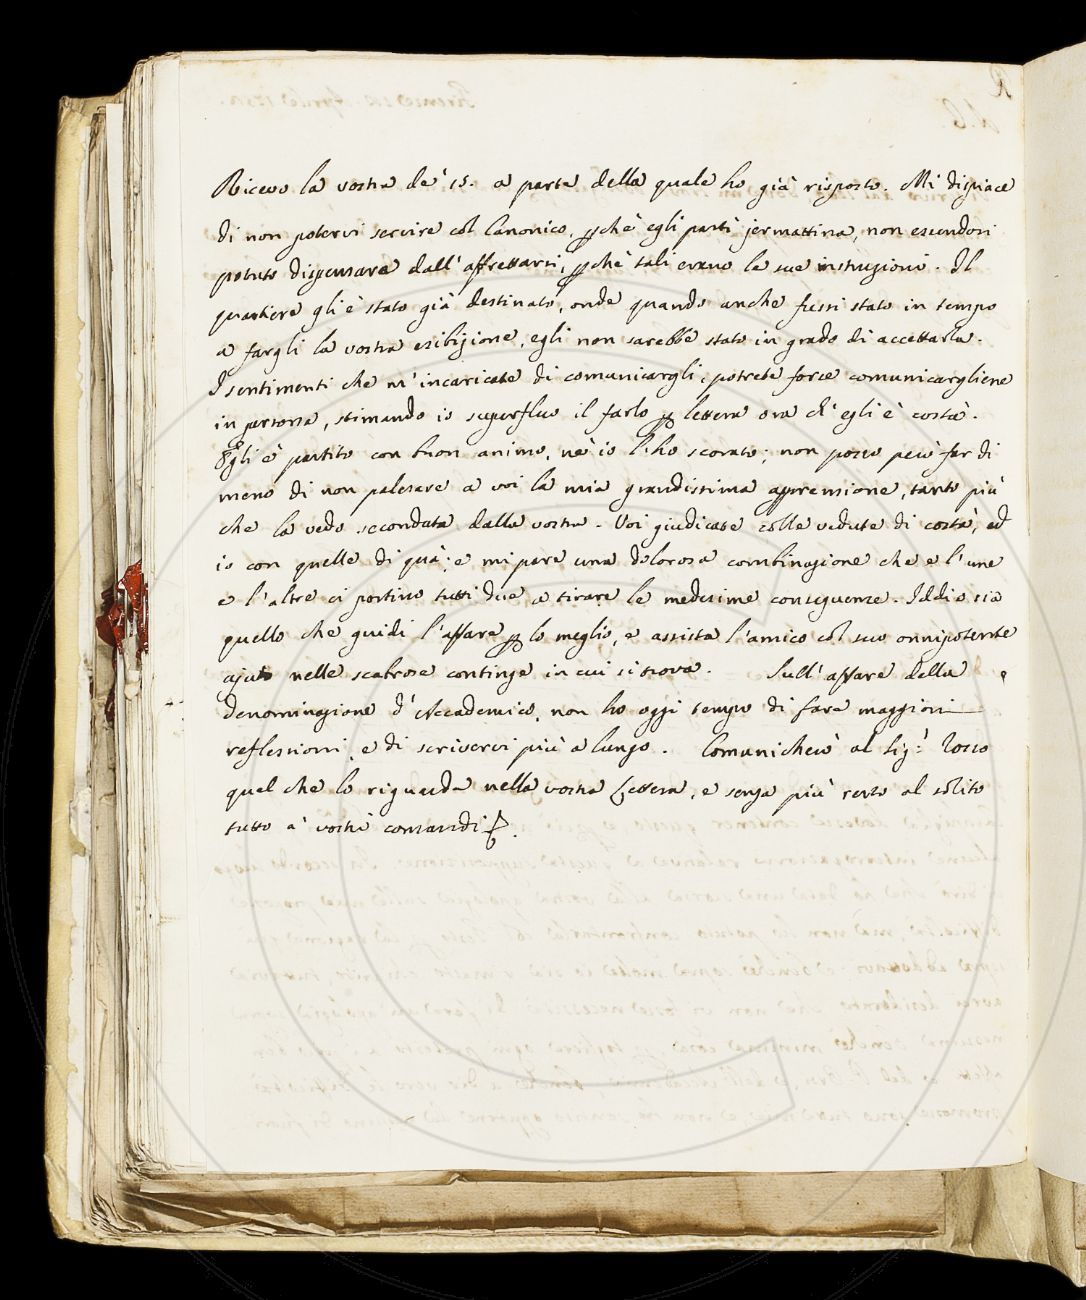 Ricevo la vostra de' 15. a parte della quale ho già risposto. Mi dispiace
di non potervi servire col Canonico, pchè egli partì jermattina, non essendosi
potuto dispensare dall'affrettarsi, pchè tali erano le sue instruzioni. Il
quartiere gli è stato già destinato, onde quando anche fussi stato in tempo
a fargli la vostra esibizione, egli non sarebbe stato in grado di accettarla.
I sentimenti che m'incaricate di comunicargli, potrete forse comunicargliene
in persona, stimando io superfluo il farlo p lettera ora ch'egli è costà.
Egli è partito con buon animo, nè io l'ho scorato; non posso però far di
meno di non palesare a voi la mia grandissima apprensione, tanto più
che la vedo secondata dalla vostra. Voi giudicate colle vedute di costà, ed
io con quelle di quà; e mi pare una dolorosa combinazione che e l'une
e l'altre ci portino tutti due a tirare le medesime conseguenze. Iddio sia
quello che guidi l'affare p lo meglio, e assista l'amico col suo onnipotente
ajuto nelle scabrose continge in cui si trova. Sull'affare della
denominazione d'Accademico, non ho oggi tempo di fare maggiori
reflessioni, e di scrivervi più a lungo. Comunicherò al Sig.r Cocco
quel che lo riguarda nella vostra Lettera, e senza più resto al solito
tutto a' vostri comandi